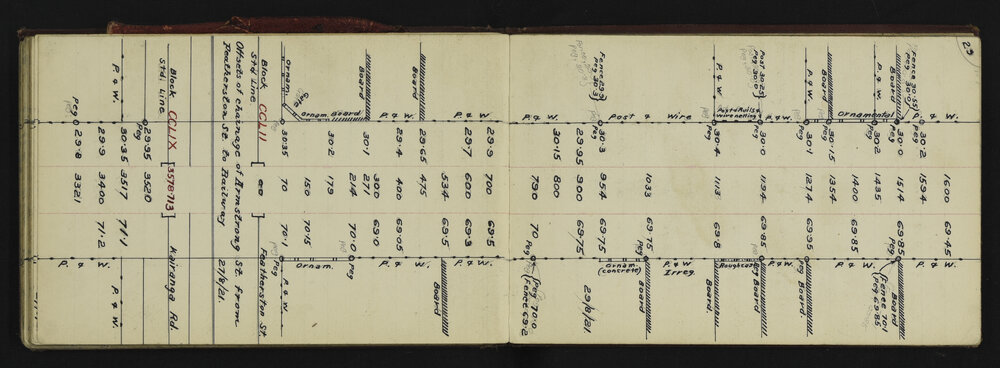 23
P. & W. 1600 69.45 P. & W.
30.2 1594
Peg
(Fence 30.15
Peg 30.0)
30.0 1514 69.85 Board
Peg Peg (Fence 70.1
Peg 69.85)
P. & W. 30.2 1435
Peg
Ornamental 1400 69.85 P. & W.
Board 30.15 1354
30.1 1274 69.95 Peg Board.
Peg
P. & W. P. & W.
(Post 30.25
Peg 30.0)
30.0 1194 69.85 Peg Board
Peg
Post & Rails & Roughcast
wire netting
P. & W. 30.4 1113 69.8 Board
Peg
P. & W
Irreg.
Post & Wire 1033 69.75 Board
Peg
Ornam.
(concrete)
(Fence 29.3
Peg 30.3)
30.3 954 69.75
Peg
29.95 900 69.75 29/6/21.
30.15 800
P. & W. 790 70. (Peg 70.0
Peg Fence 69.2
29.9 700 69.5 P. & W.
29.7 600 69.3
534 Board
Board 29.65 475
P. & W. 29.4 400 69.05 P. & W.
300 69.0
Board 30.1 271
214 70.0 Peg
Ornam. Board 30.2 179
Gate 150 70.15 Ornam.
Ornam. 30.35 70 70.1 Peg P. & W.
Block CCLII [ 00 ] Featherston St.
Std Line
Offsets of chainage of Armstrong St. from
Featherston St. to Railway 27/6/21.
Block CCLIX [3578.713] Kairanga Rd
Std. Line
29.95 3520
Peg
P. & W. 30.35 3517 71.1 P. & W.
29.9 3400 71.2
Peg 29.8 3321 P. & W.